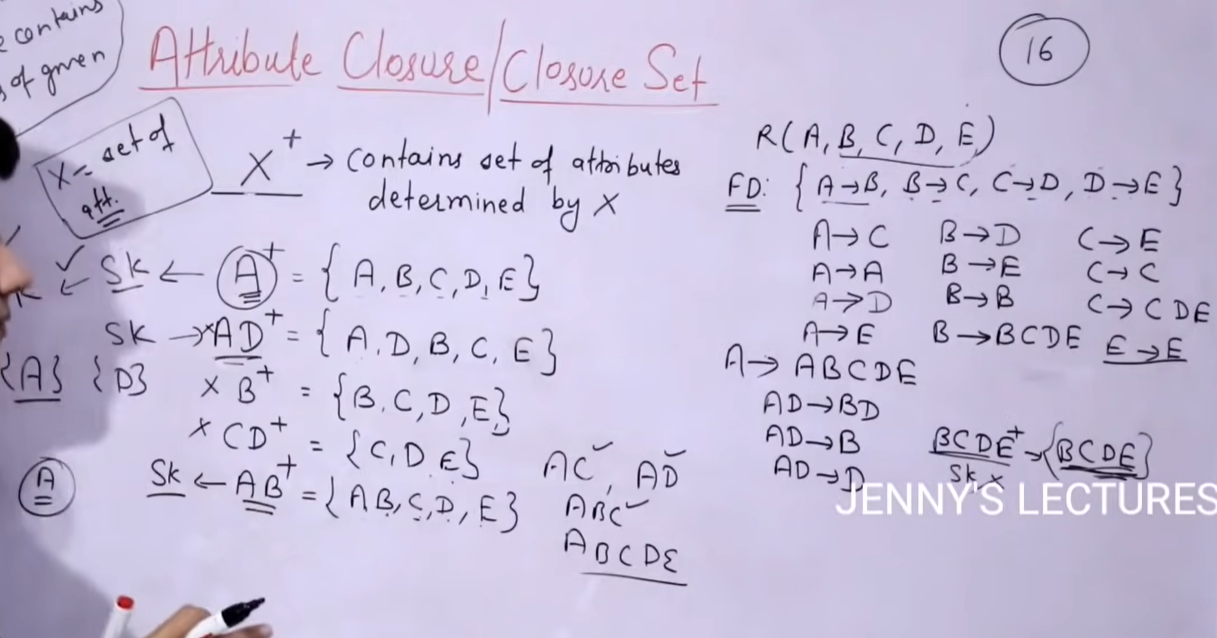 contains
of given
Attribute Closure/Closure Set
16
X = set of
att.
X⁺ → contains set of attributes
determined by X
✓ SK ← A⁺ = { A, B, C, D, E}
SK → ×AD⁺ = { A, D, B, C, E}
{A} {D} × B⁺ = {B, C, D, E}
× CD⁺ = {C, D, E}
A SK ← AB⁺ = {AB, C, D, E}
AC✓, AD✓
ABC✓
ABCDE
R(A, B, C, D, E)
FD: { A→B, B→C, C→D, D→E}
A→C B→D C→E
A→A B→E C→C
A→D B→B C→CDE
A→E B→BCDE E→E
A→ABCDE
AD→BD
AD→B BCDE⁺→{BCDE}
AD→D SK ×
JENNY'S LECTURES